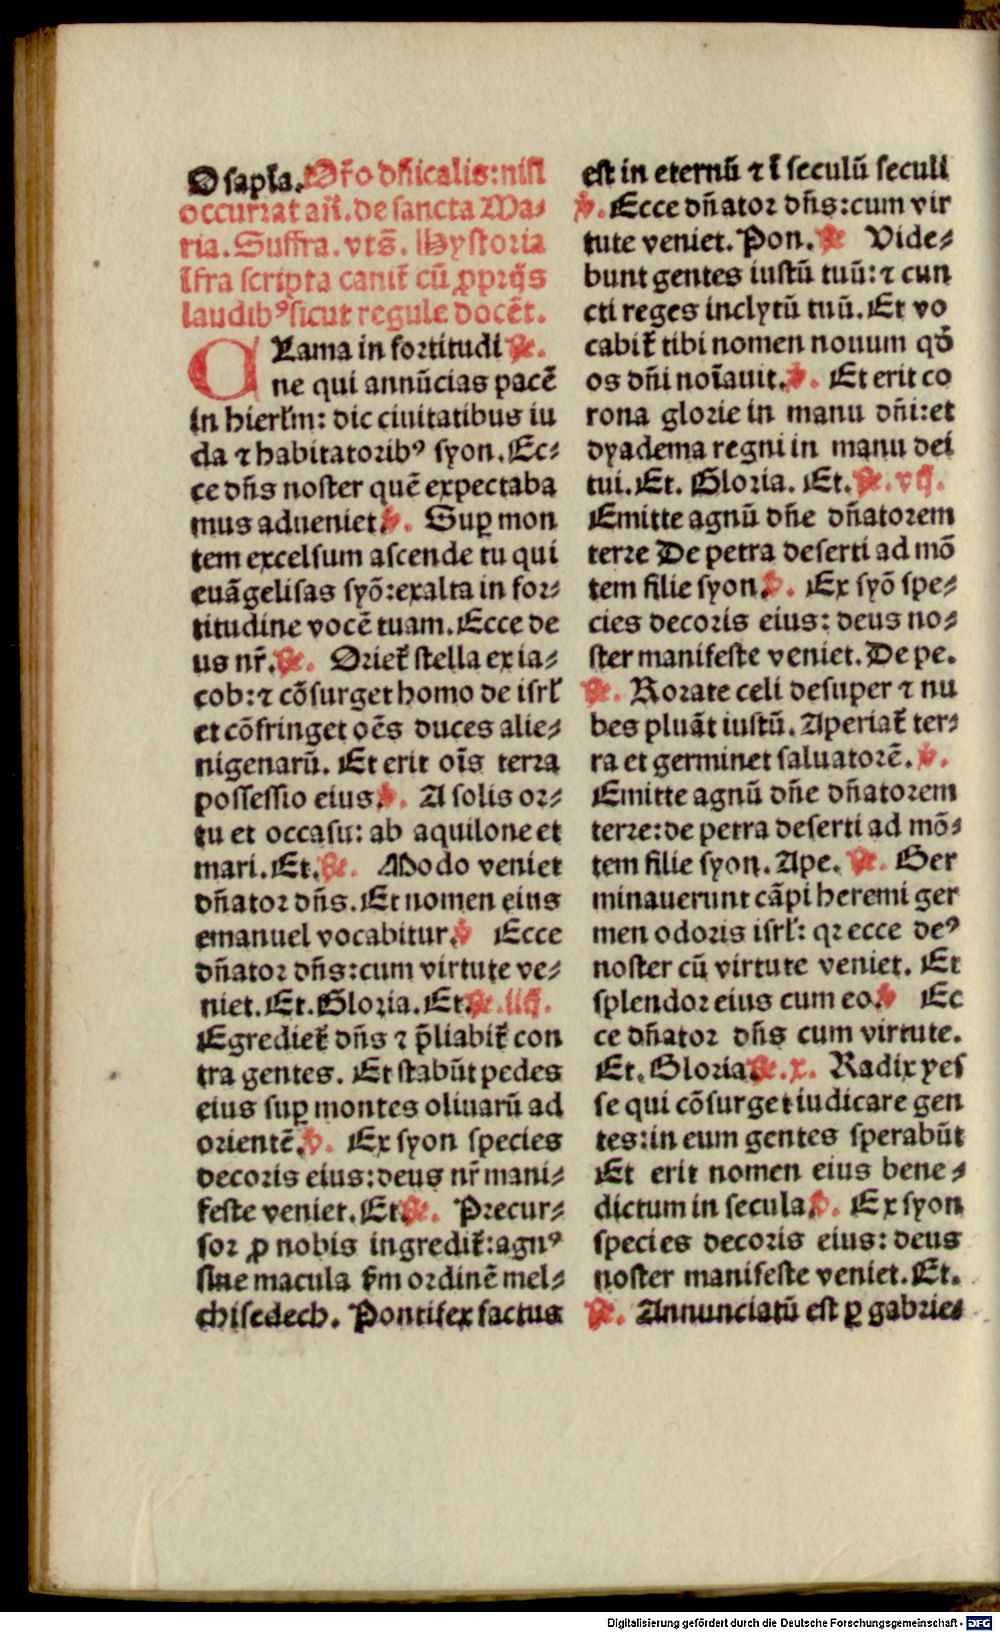 O sapīa. Or̄o dn̄icalis: nisi
occurrat an̄. de sancta Ma⸗
ria. Suffra. vts̄. Hystoria
īfra scripta canit᷑ cū ꝓprijs
laudibꝰ sicut regule docēt.
Clama in fortitudi ℟.
ne qui annūcias pacē
in hierlm̄: dic ciuitatibus iu
da ⁊ habitatoribꝰ syon. Ec⸗
ce dn̄s noster quē expectaba
mus adueniet. ℣. Suꝑ mon
tem excelsum ascende tu qui
euāgelisas syō: exalta in for⸗
titudine vocē tuam. Ecce de
us nr̄. ℟. Oriet᷑ stella ex ia⸗
cob: ⁊ cōsurget homo de isrl̄
et cōfringet oēs duces alie⸗
nigenarū. Et erit oīs terra
possessio eius. ℣. A solis or⸗
tu et occasu: ab aquilone et
mari. Et. ℟. Modo veniet
dn̄ator dn̄s. Et nomen eius
emanuel vocabitur. ℣ Ecce
dn̄ator dn̄s: cum virtute ve⸗
niet. Et. Gloria. Et. ℟. iiij.
Egrediet᷑ dn̄s ⁊ p̄liabit᷑ con
tra gentes. Et stabūt pedes
eius suꝑ montes oliuarū ad
orientē. ℣. Ex syon species
decoris eius: deus nr̄ mani⸗
feste veniet. Et. ℟. Precur⸗
sor ꝓ nobis ingredit᷑: agnꝰ
sine macula s̄m ordinē mel⸗
chisedech. Pontifex factus
est in eternū ⁊ ī seculū seculi
℣. Ecce dn̄ator dn̄s: cum vir
tute veniet. Pon. ℟ Vide⸗
bunt gentes iustū tuū: ⁊ cun
cti reges inclytū tuū. Et vo
cabit᷑ tibi nomen nouum qd̄
os dn̄i noīauit. ℣. Et erit co
rona glorie in manu dn̄i: et
dyadema regni in manu dei
tui. Et. Gloria. Et. ℟. vij.
Emitte agnū dn̄e dn̄atorem
terre De petra deserti ad mō
tem filie syon. ℣. Ex syō spe⸗
cies decoris eius: deus no⸗
ster manifeste veniet. De pe.
℟. Rorate celi desuper ⁊ nu
bes pluāt iustū. Aperiat᷑ ter⸗
ra et germinet saluatorē. ℣.
Emitte agnū dn̄e dn̄atorem
terre: de petra deserti ad mō⸗
tem filie syon. Ape. ℟. Ger
minauerunt cāpi heremi ger
men odoris isrl̄: qr ecce deꝰ
noster cū virtute veniet. Et
splendor eius cum eo. ℣ Ec
ce dn̄ator dn̄s cum virtute.
Et. Gloria. ℟. x. Radix yes
se qui cōsurget iudicare gen
tes: in eum gentes sperabūt
Et erit nomen eius bene⸗
dictum in secula. ℣. Ex syon
species decoris eius: deus
noster manifeste veniet. Et.
℟. Annunciatū est ꝑ gabrie⸗
Digitalisierung gefördert durch die Deutsche Forschungsgemeinschaft - DFG